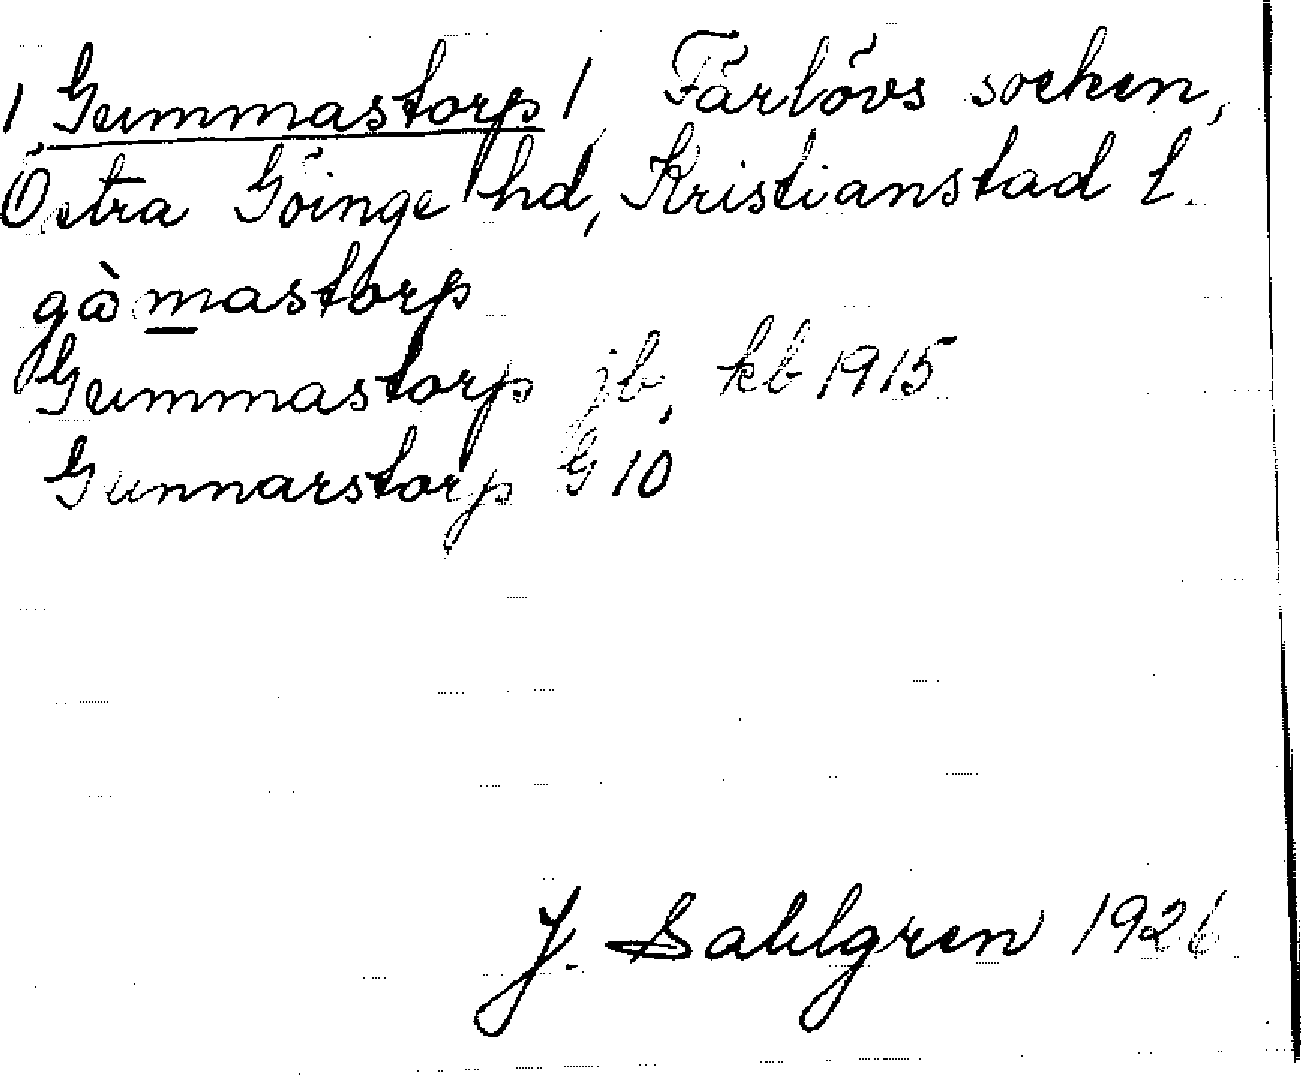 / Gummastorp / Färlövs socken,
Östra Göinge hd, Kristianstad l.
gòmastorp
Gummastorp jb, kb 1915
Gunnarstorp G 10
J. Sahlgren 1926